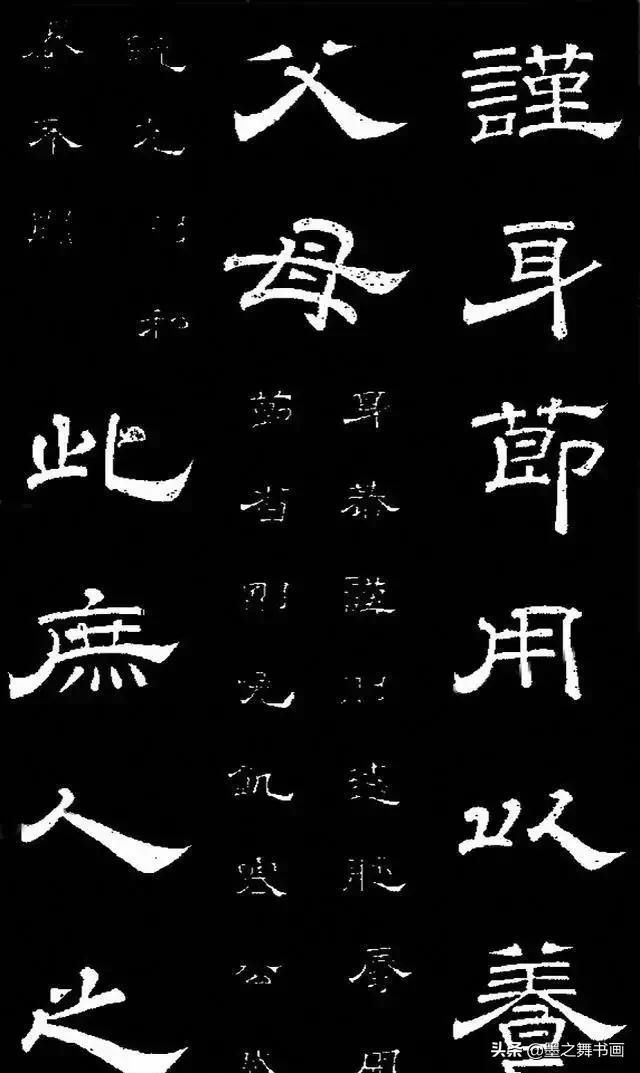 謹身節用以養
父母
身恭謹則遠恥辱用
節省則免飢寒公賦
既充則私
養不闕
此庶人之
头条 @墨之舞书画